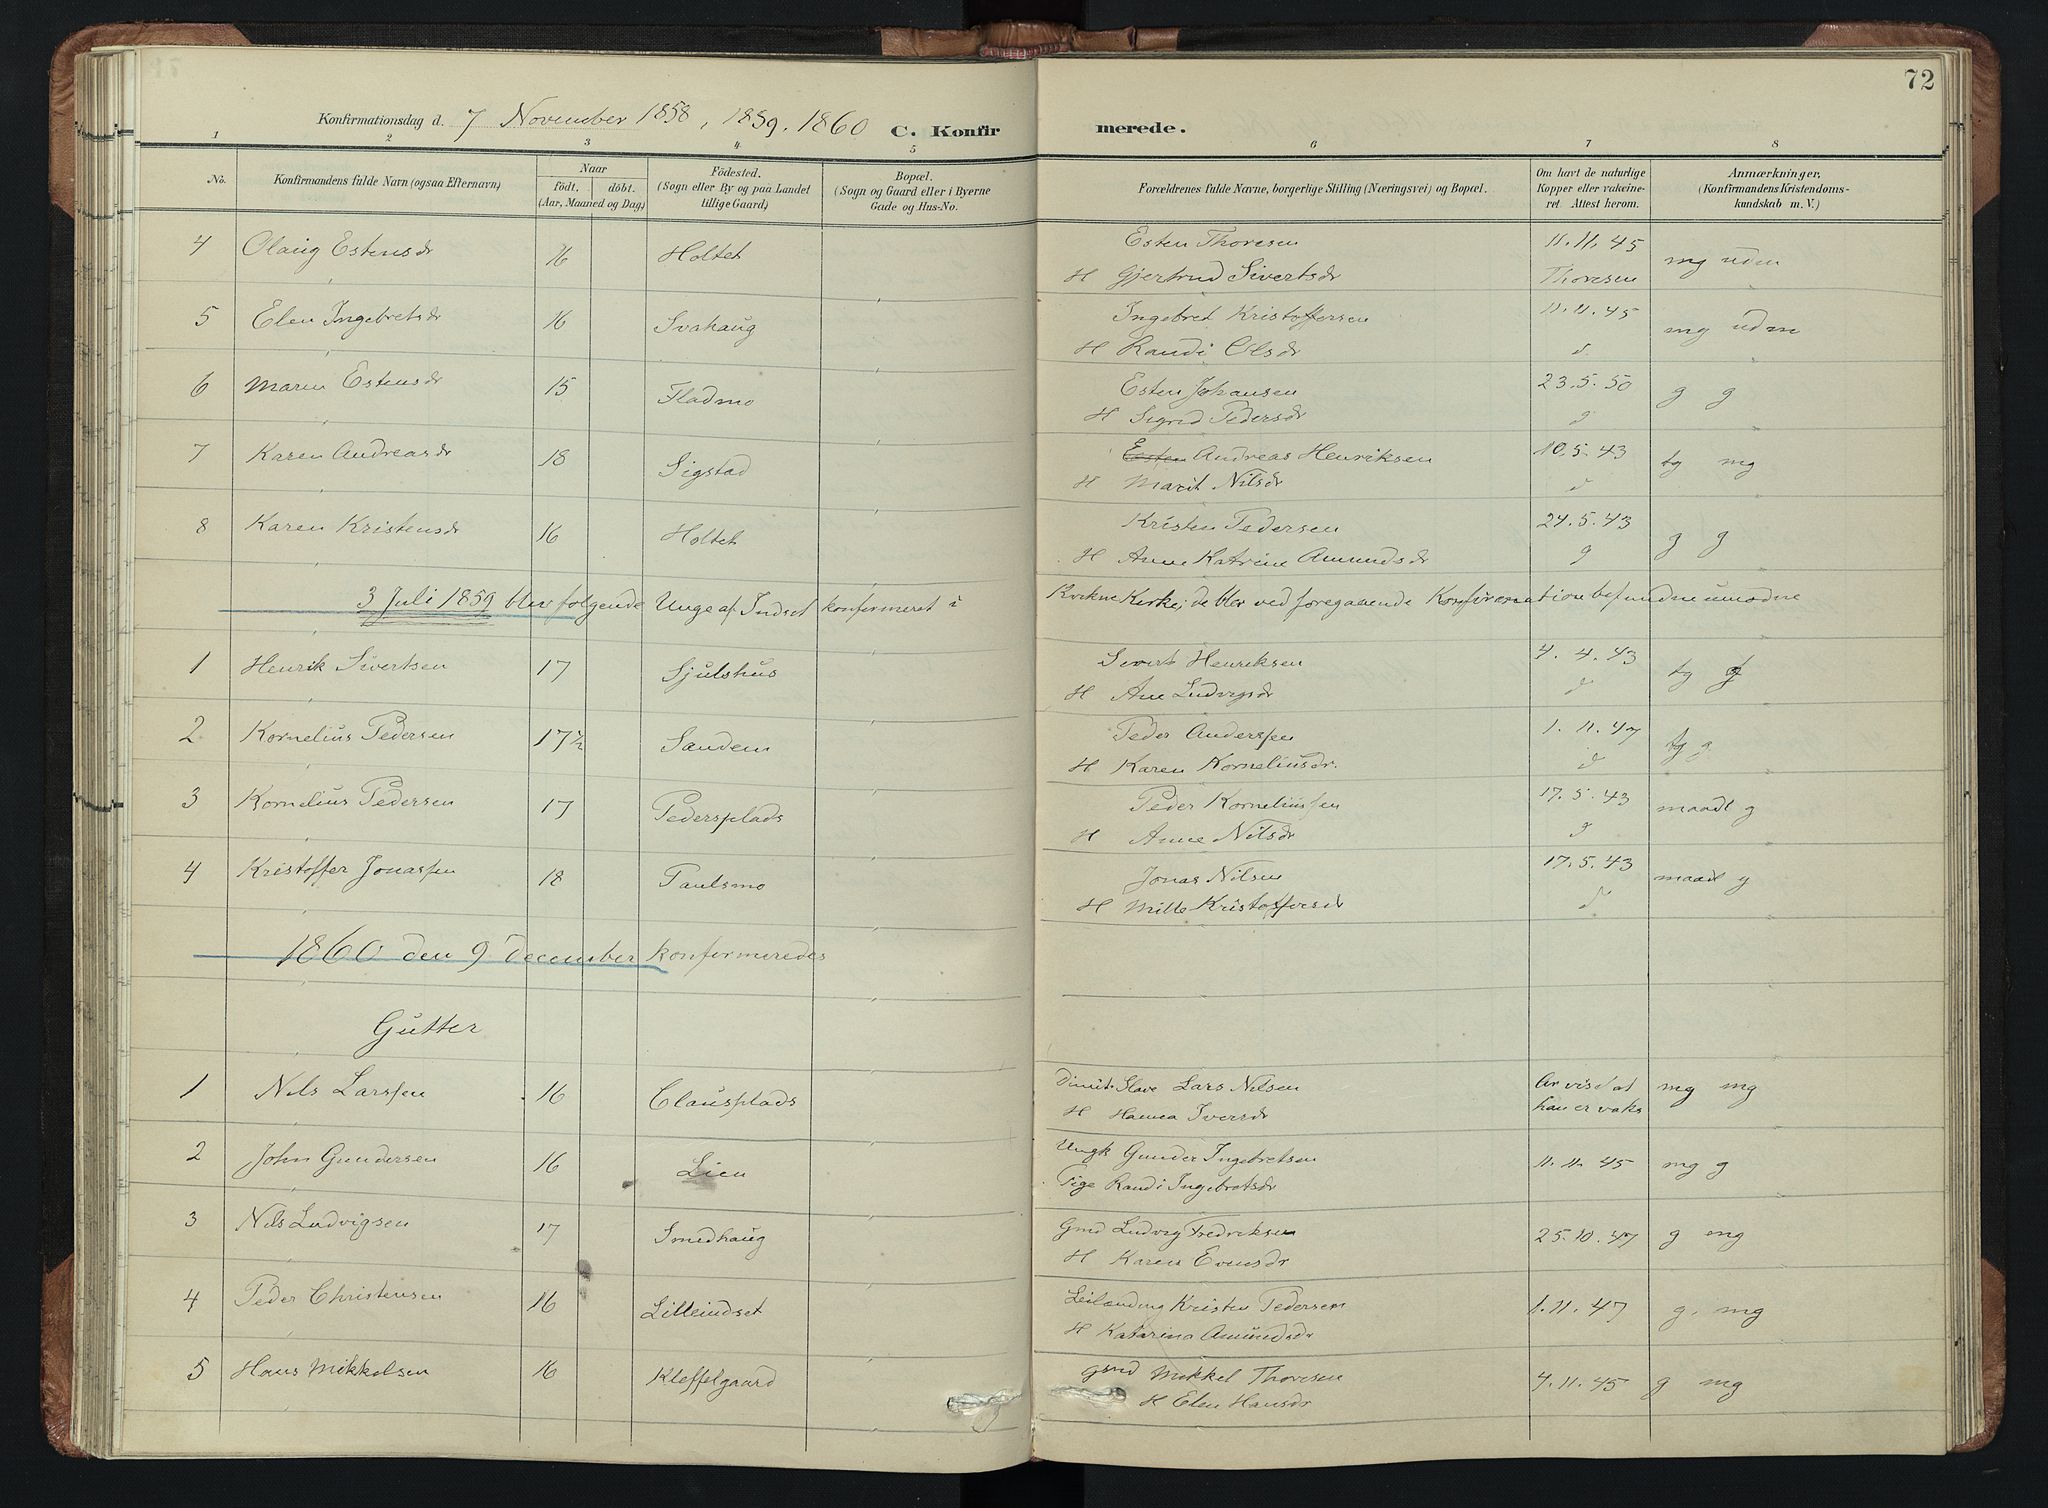 72
Konfirmationsdag d. 7 November 1858, 1859. 1860 C. Konfir merede.
1 2 3 4 5 6 7 8
No. Konfirmandens fulde Navn (ogsaa Efternavn) Naar født. døbt. (Aar, Maaned og Dag) Fødested. (Sogn eller By og paa Landet tillige Gaard) Bopæl. (Sogn og Gaard eller i Byerne Gade og Hus-No. Forældrenes fulde Navne, borgerlige Stilling (Næringsvei) og Bopæl. Om havt de naturlige Kopper eller vakcineret. Attest herom. Anmærkninger, (Konfirmandens Kristendomskundskab m. V.)
4 Olaug Estensdr 16 Holtet Esten Thoresen 11.11.45 mg udm
H Gjertrud Sivertsdr Thoresen
5 Elen Ingebretsdr 16 Svahaug Ingebret Kristoffersen 11.11.45 mg udm
H Randi Olsdr d.
6 Maren Estensdr 15 Fladmo Esten Johansen 23.5.50 g g
H Sigrid Pedersdr
7 Karen Andreasdr 18 Sigstad Esten Andreas Henriksen 10.5.43 tg mg
H Marit Nilsdr d
8 Karen Kristensdr 16 Holtet Kristen Pedersen 24.5.43 g g
H Anne Katrine Amundsdr
3 Juli 1859 blev følgende Unge af Indset konfermeret i Kvikne Kirke; de blev ved foregaaende Konfirmation befundne umodne
1 Henrik Sivertsen 17 Sjulshus Sivert Henriksen 4.4.43 tg g
H Ane Ludvigsdr d
2 Kornelius Pedersen 17½ Sandem Peder Anderssen 1.11.47 tg g
H Karen Korneliusdr. d
3 Kornelius Pedersen 17 Pedersplads Peder Korneliussen 17.5.43 maadl g
H Anne Nilsdr
4 Kristoffer Jonassen 18 Paulsmo Jonas Nilsen 17.5.43 maadl g
H Mille Kristoffersdr d
1860 den 9 december konfermeredes
Gutter
1 Nils Larssen 16 Clausplads Dimit. Slave Lars Nilsen Ar vis d at mg mg
H Hanna Iversdr han er vaks
2 John Gundersen 16 Lien Ungk Gunder Ingebretsen 11.11.45 mg g
Pige Randi Ingebretsdr
3 Nils Ludvigsen 17 Smedhaug Gmd Ludvig Fredriksen 25.10.47 g mg
H Karen Evensdr
4 Peder Christensen 16 Lilleindset Leilænding Kristen Pedersen 1.11.47 g. mg
H Katarina Amundsdr
5 Hans Mikkelsen 16 Kleffelgaard Gmd Mikkel Thoresen 4.11.45 g mg
H Elen Hansdr